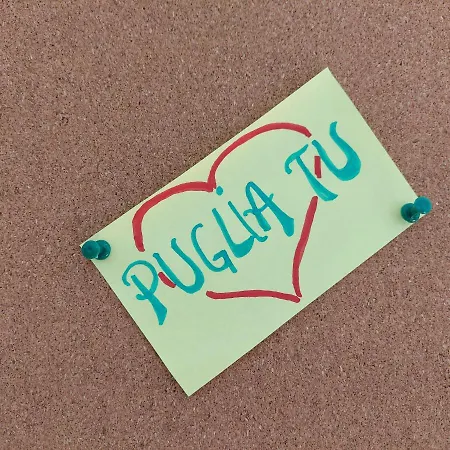 PUGLiA TU